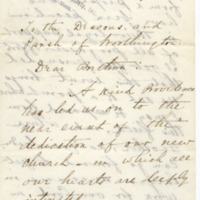 To the Deacons and
Parish of Worthington
Dear Brethren:
A kind Providence
has led us on to the
near event of the
dedication of our new
church — in which all
our hearts are deeply
interested